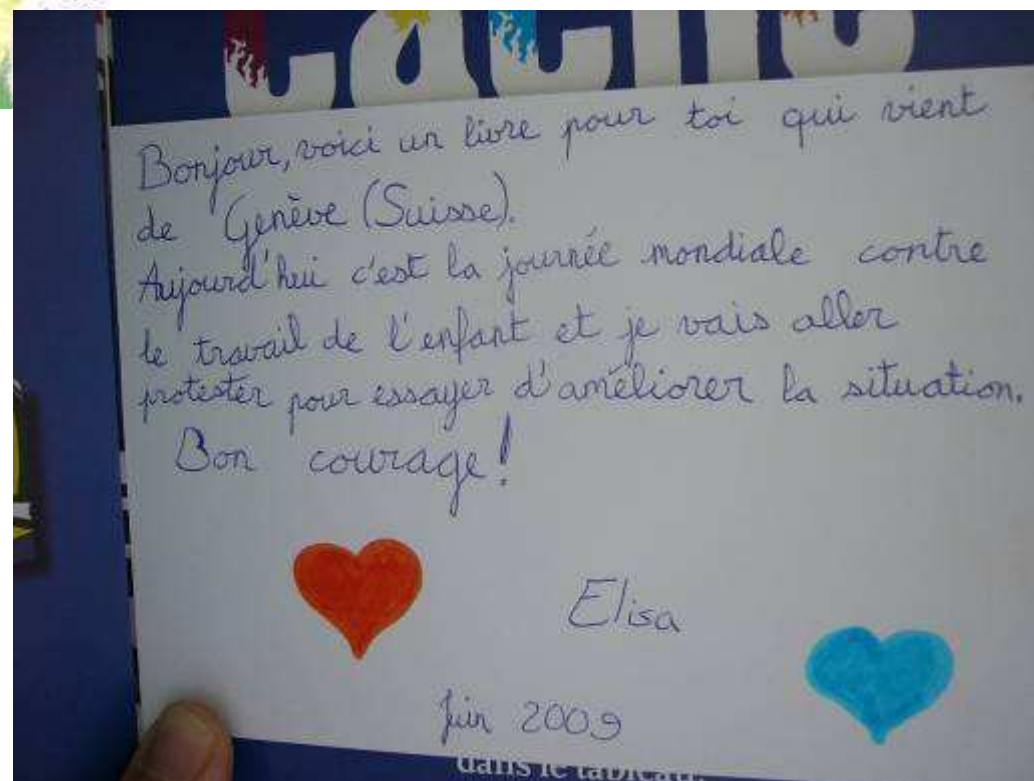 Bonjour, voici un livre pour toi qui vient
de Genève (Suisse).
Aujourd'hui c'est la journée mondiale contre
le travail de l'enfant et je vais aller
protester pour essayer d'améliorer la situation.
Bon courage!
Elisa
Juin 2009
dans le tableau.